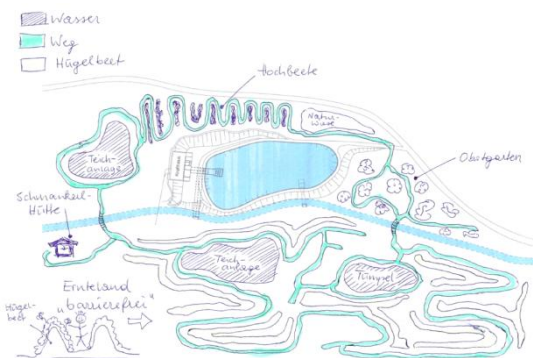 Wasser
Weg
Hügelbeet
Hochbeete
Natur-
wiese
Teich-
anlage
Obstgarten
Schmankerl-
Hütte
Teich-
anlage
Tümpel
Ernteland
"barrierefrei"
Hügel-
beet